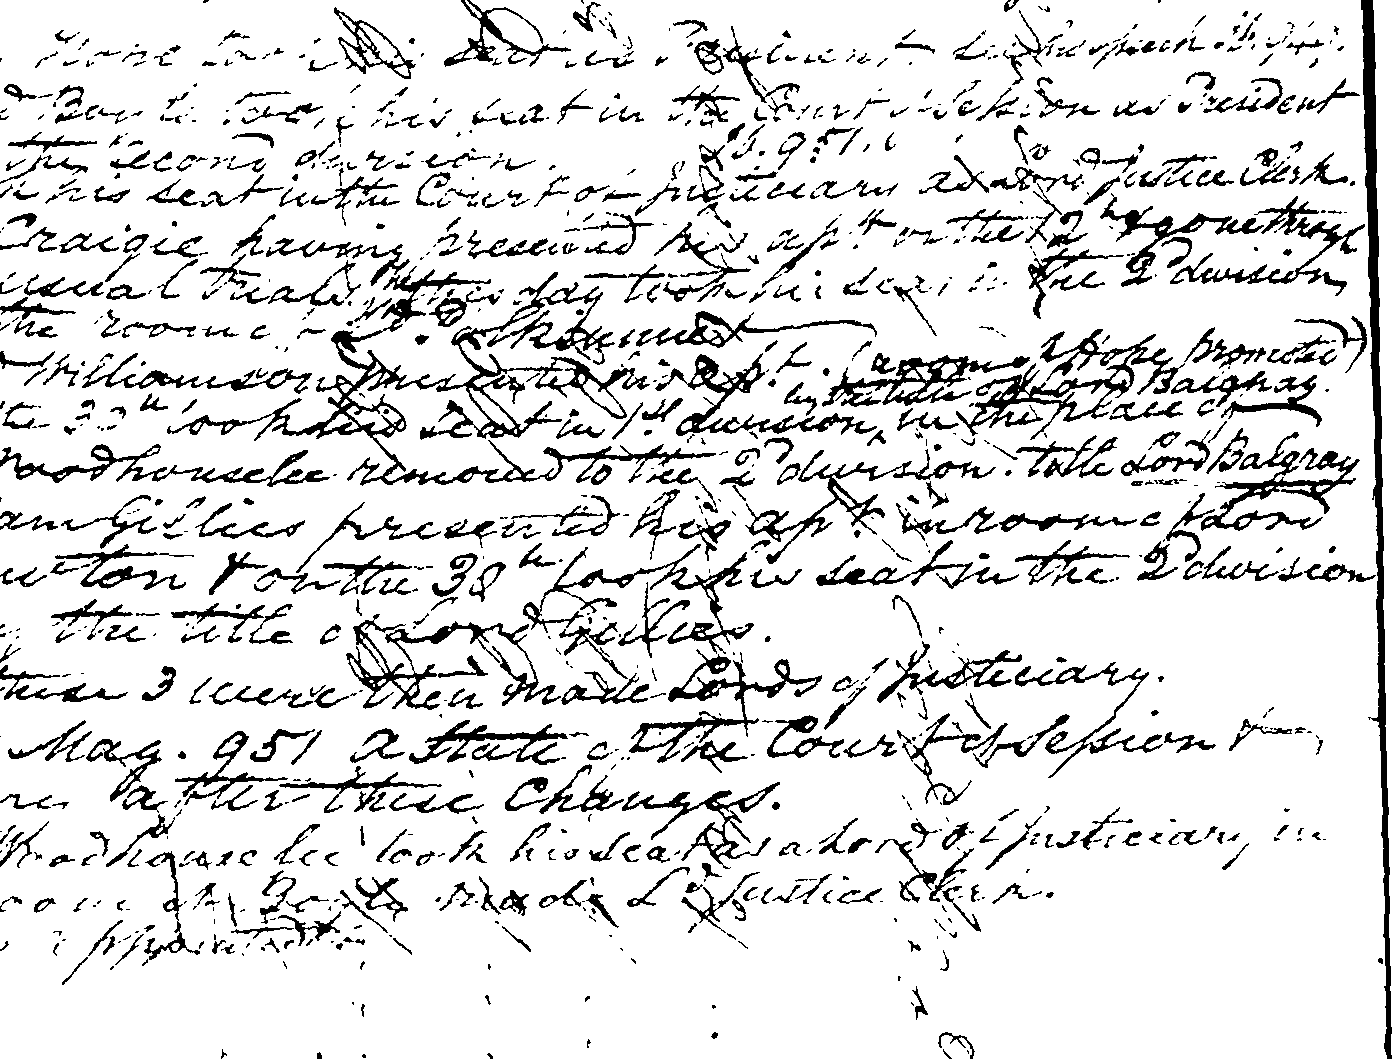 Hope took his seat as President. See his speech. Ib. 947.
d Boyle took his seat in the Court of Session as President
the second division. Ib. 951.
k his seat in the Court of Justiciary as Lord Justice Clerk.
Craigie having presented his apt. on the 2d & gone through
usual trials this day took his seat in the 2d division,
the room of Ld. Polkemmet
Williamson presented his apt. (in room of Hope promoted)
by the title of Lord Balgray.
the 30th took his seat in 1st division, in the place of
Woodhouselee removed to the 2d division. title Lord Balgray
am Gillies presented his apt. in room of Lord
wton & on the 30th took his seat in the 2d division
y the title of Lord Gillies.
these 3 were then made Lords of Justiciary.
Mag. 951 a state of the Court of Session &
after these Changes.
Woodhouselee took his seat as a Lord of Justiciary, in
room of Boyle made Ld. Justice Clerk.